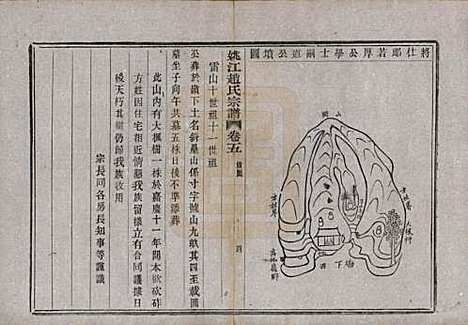 將仕郎若厚公學士嗣道公墳圖
姚江趙氏宗譜
卷五
墳圖
四
雷山十世祖十一世祖
公葬於嶺下土名斜壘山係寸字號山九畝其四至載圖
墓坐子向午共墓五株日後不準添葬
此山內有大楓樹一株於嘉慶十一年間本欲砍砟
方姓因住宅相近情懇我族留樣立有合同議據日
後天朽其樹仍歸我族收用
宗長同各房長知事等謹識